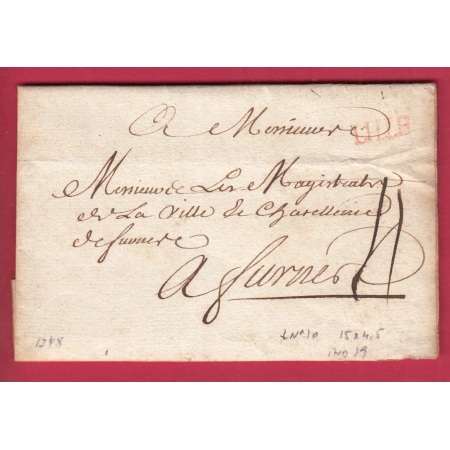 A Messieurs
LILLE
Messieurs Les Magistrats
de La Ville & Chatellenie
de furnes
A furnes
11
1748
L No 10 15 x 4,5
IND 19